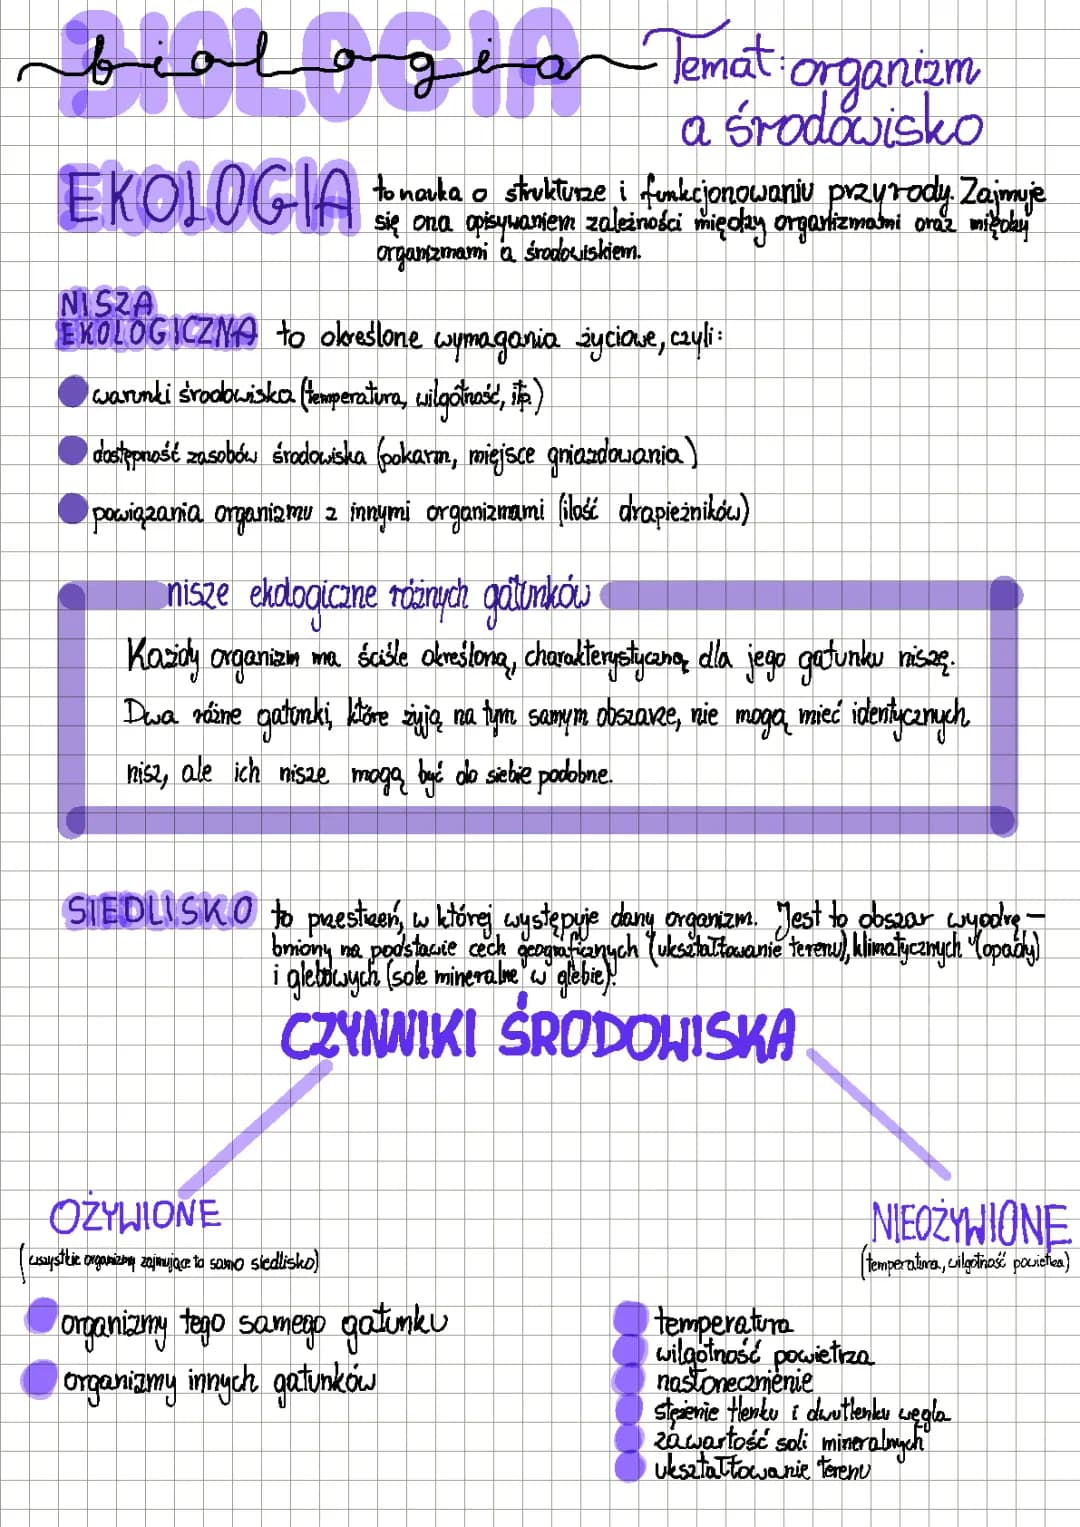 BIOLOGIA
biologia
Temat: organizm
a środowisko
EKOLOGIA to nauka o strukturze i funkcjonowaniu przyrody. Zajmuje
się ona opisywaniem zależności między organizmami oraz między
organizmami a środowiskiem.
NISZA
EKOLOGICZNA to określone wymagania życiowe, czyli:
warunki środowiska (temperatura, wilgotność, itp.)
dostępność zasobów środowiska (pokarm, miejsce gniazdowania)
powiązania organizmu z innymi organizmami (ilość drapieżników)
nisze ekologiczne różnych gatunków
Każdy organizm ma ściśle określoną, charakterystyczną dla jego gatunku niszę.
Dwa różne gatunki, które żyją na tym samym obszarze, nie mogą mieć identycznych
nisz, ale ich nisze mogą być do siebie podobne.
SIEDLISKO to przestrzeń, w której występuje dany organizm. Jest to obszar wyodrę-
bniony na podstawie cech geograficznych (ukształtowanie terenu), klimatycznych (opady)
i glebowych (sole mineralne w glebie).
CZYNNIKI ŚRODOWISKA
OŻYWIONE
(wszystkie organizmy zajmujące to samo siedlisko)
organizmy tego samego gatunku
organizmy innych gatunków
NIEOŻYWIONE
(temperatura, wilgotność powietrza)
temperatura
wilgotność powietrza
nasłonecznienie
stężenie tlenku i dwutlenku węgla
zawartość soli mineralnych
ukształtowanie terenu